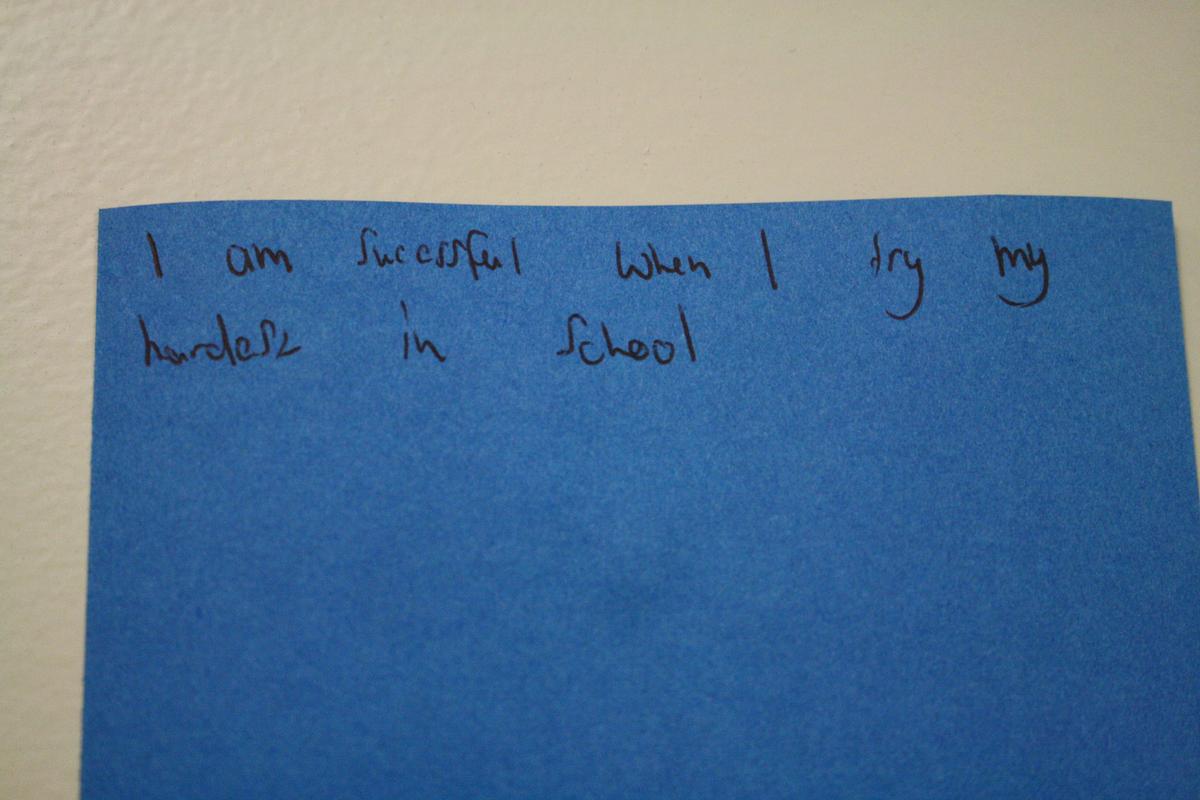 I am sucessful when I try my
hardest in school